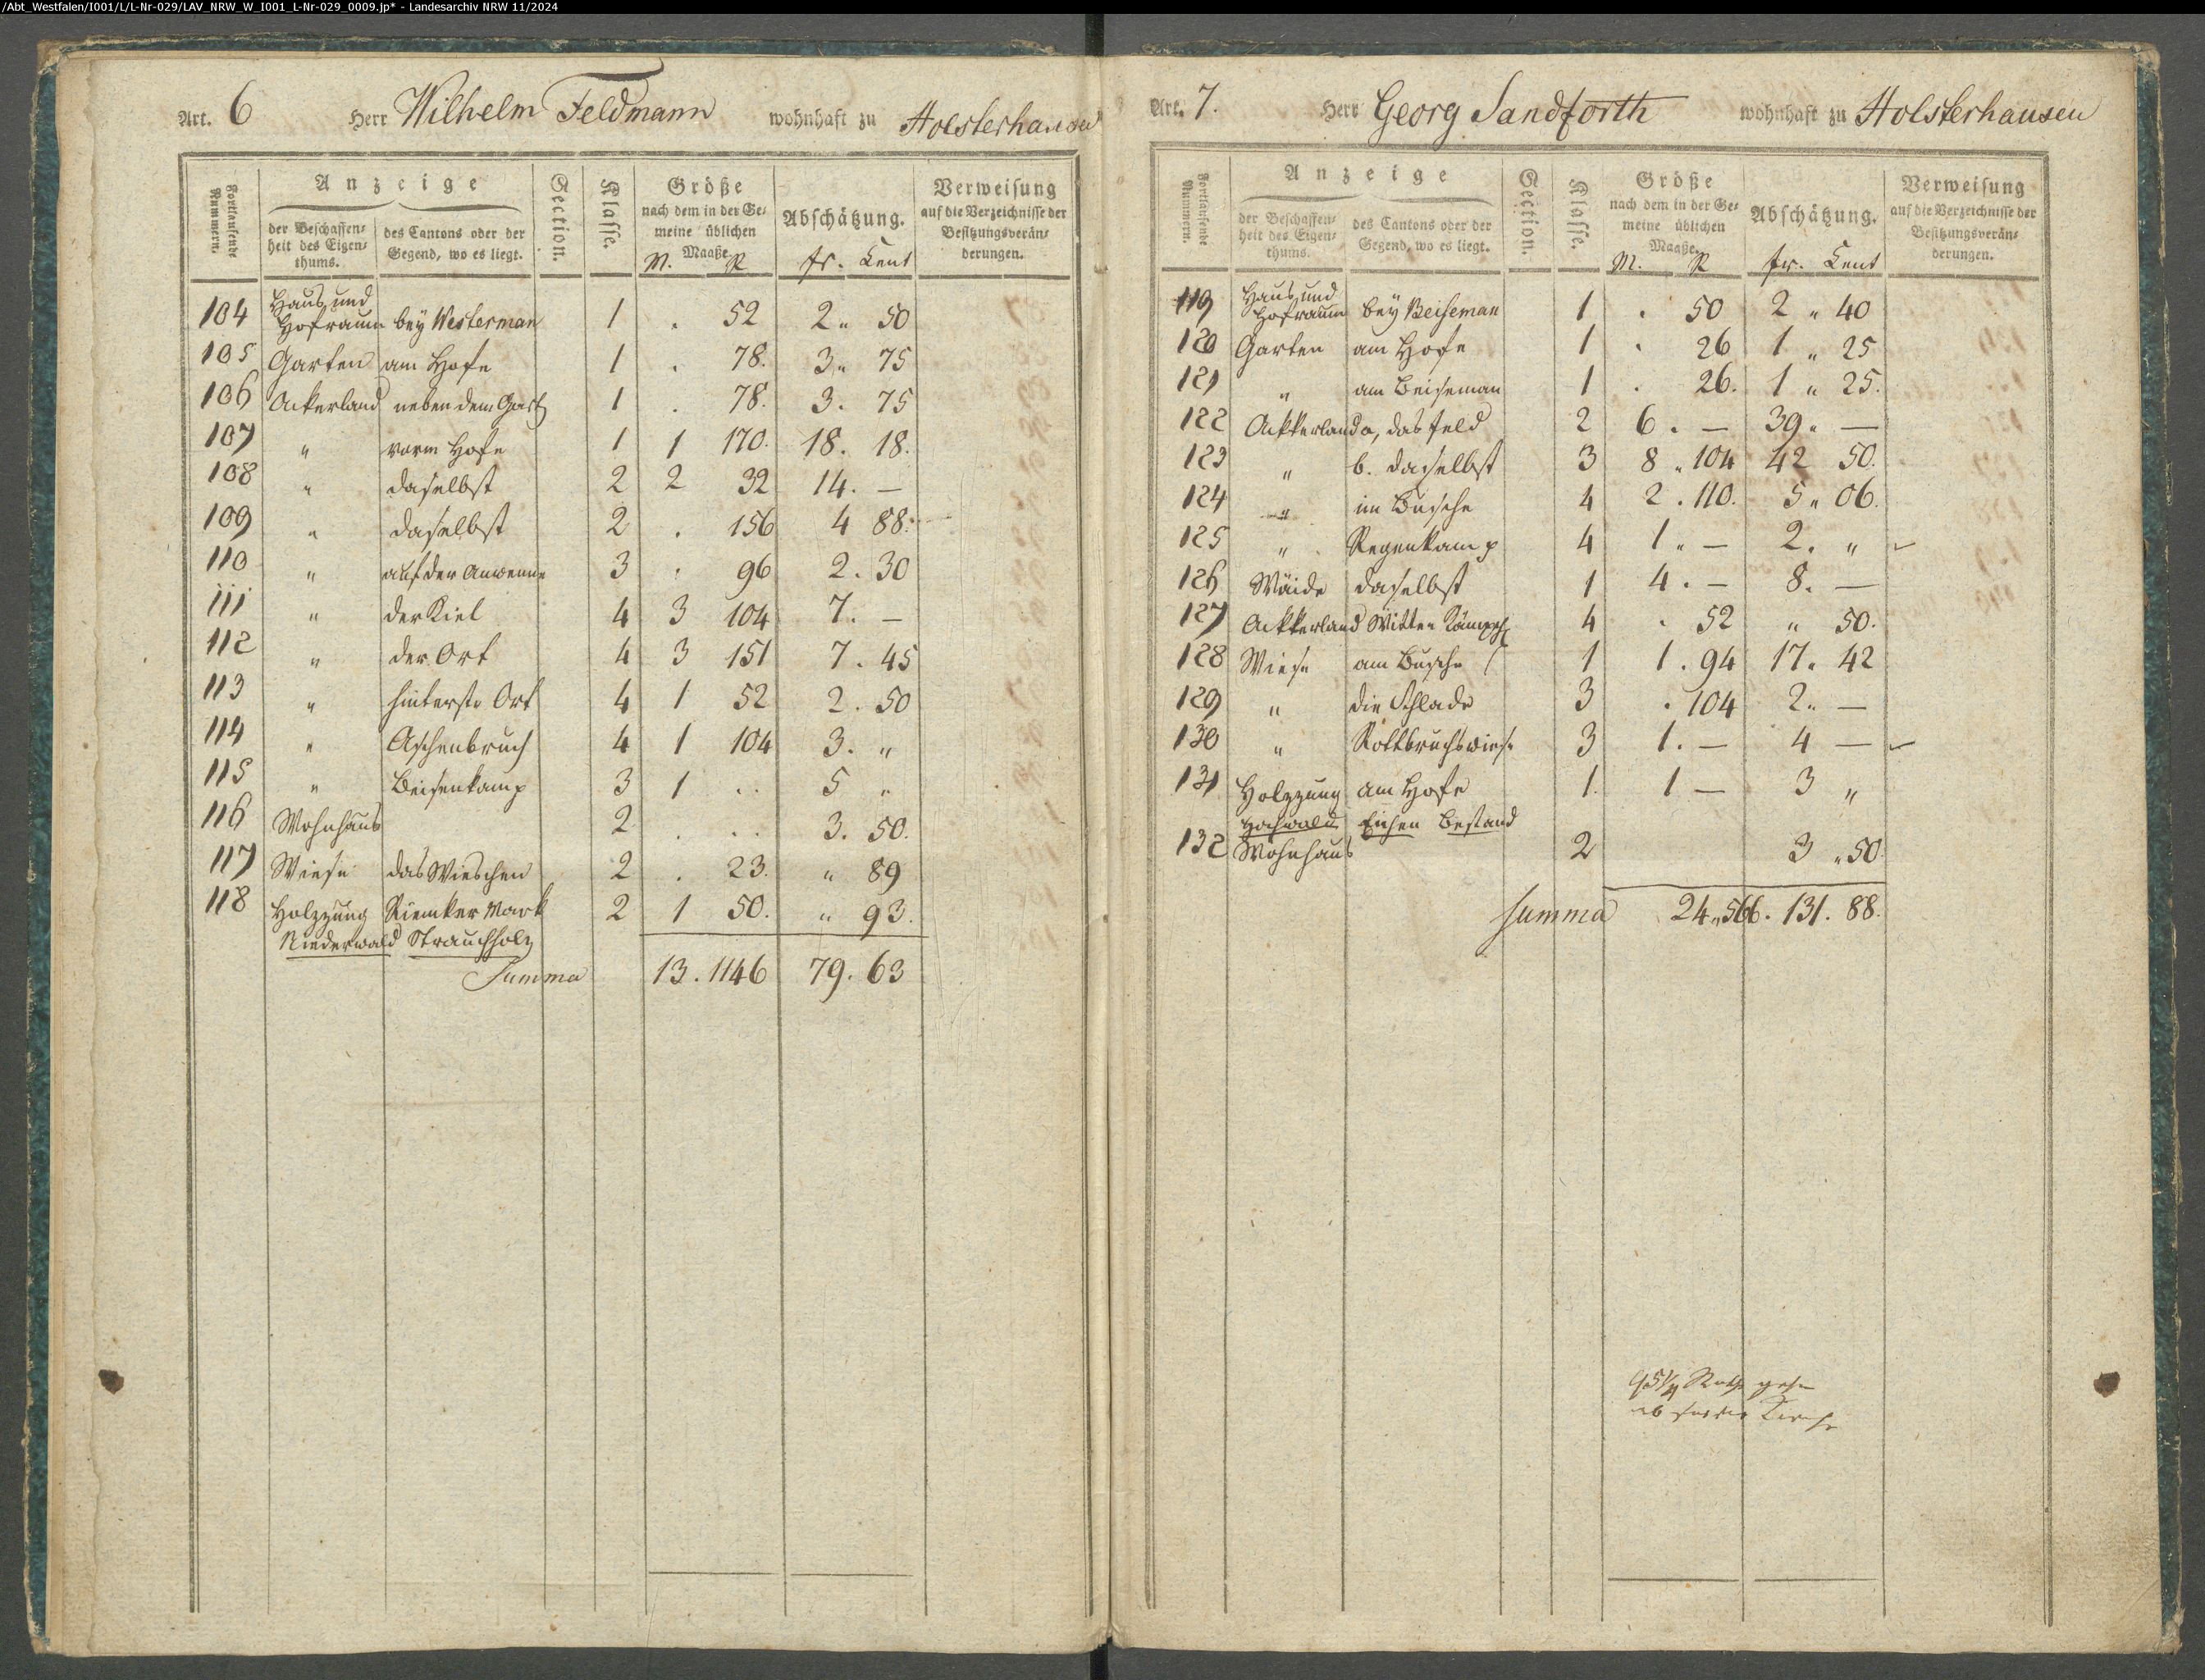 /Abt_Westfalen/I001/L/L-Nr-029/LAV_NRW_W_I001_L-Nr-029_0009.jp* - Landesarchiv NRW 11/2024
Art. 6 Herr Wilhelm Feldmann wohnhaft zu Holsterhausen
Fortlaufende Nummern.
Anzeige
der Beschaffen-
heit des Eigen-
thums.
des Cantons oder der
Gegend, wo es liegt.
Section.
Klasse.
Größe
nach dem in der Ge-
meine üblichen
Maaße
M. R
Abschätzung.
fr. Cent
Verweisung
auf die Verzeichnisse der
Besitzungsverän-
derungen.
104 Haus und Hofraum bey Westerman 1 . 52 2 „ 50
105 Garten am Hofe 1 . 78. 3 „ 75
106 Ackerland neben dem Gart 1 . 78. 3. 75
107 „ vorm Hofe 1 1 170. 18. 18.
108 „ daselbst 2 2 32 14. —
109 „ daselbst 2 . 156 4 88.
110 „ auf der Anwenne 3 . 96 2. 30
111 „ der Kiel 4 3 104 7. —
112 „ der Ort 4 3 151 7. 45
113 „ hinterste Ort 4 1 52 2. 50
114 „ Aschenbruch 4 1 104 3. „
115 „ Beisenkamp 3 1 . . 5 „
116 Wohnhaus 2 . . . 3. 50.
117 Wiese das Wieschen 2 . 23. „ 89
118 Holzzung Riemker Mark 2 1 50. „ 93.
Niederwald Strauchholz
Summa 13. 1146 79. 63
Art. 7. Herr Georg Sandforth wohnhaft zu Holsterhausen
Fortlaufende Nummern.
Anzeige
der Beschaffen-
heit des Eigen-
thums.
des Cantons oder der
Gegend, wo es liegt.
Section.
Klasse.
Größe
nach dem in der Ge-
meine üblichen
Maaße
M. R
Abschätzung.
fr. Cent
Verweisung
auf die Verzeichnisse der
Besitzungsverän-
derungen.
119 Haus und Hofraum bey Beiseman 1 . 50 2 „ 40
120 Garten am Hofe 1 . 26 1 „ 25
121 „ am Beiseman 1 . 26. 1 „ 25.
122 Ackkerland a, das feld 2 6. — 39 „ —
123 „ b. daselbst 3 8 „ 104 42 50.
124 „ im Busche 4 2. 110. 5 „ 06.
125 „ Regenkamp 4 1 „ — 2. „
126 Wäide daselbst 1 4. — 8. —
127 Ackkerland Witten 4 . 52 „ 50.
128 Wiese am Busche 1 1. 94 17. 42
129 „ die Schlade 3 . 104 2 „ —
130 „ Rottbruchswiese 3 1. — 4 —
131 Holzzung am Hofe 1. 1 — 3 „
Hochwald Eichen Bestand
132 Wohnhaus 2 3 „ 50
Summa 24 „ 566. 131. 88.